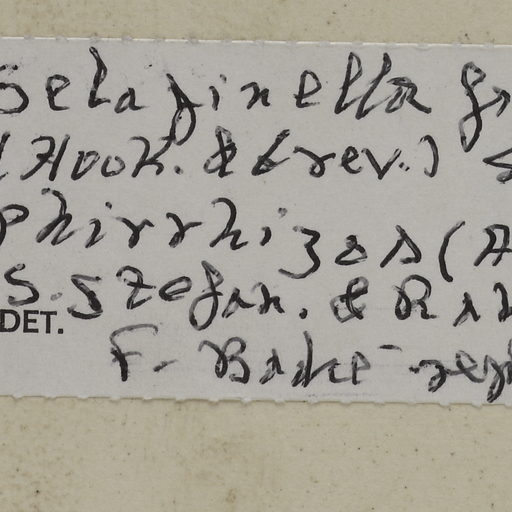 Selaginella gr
(Hook. & Grev.) S
phirrhizos (A
S. Stefan. &
DET.
F.